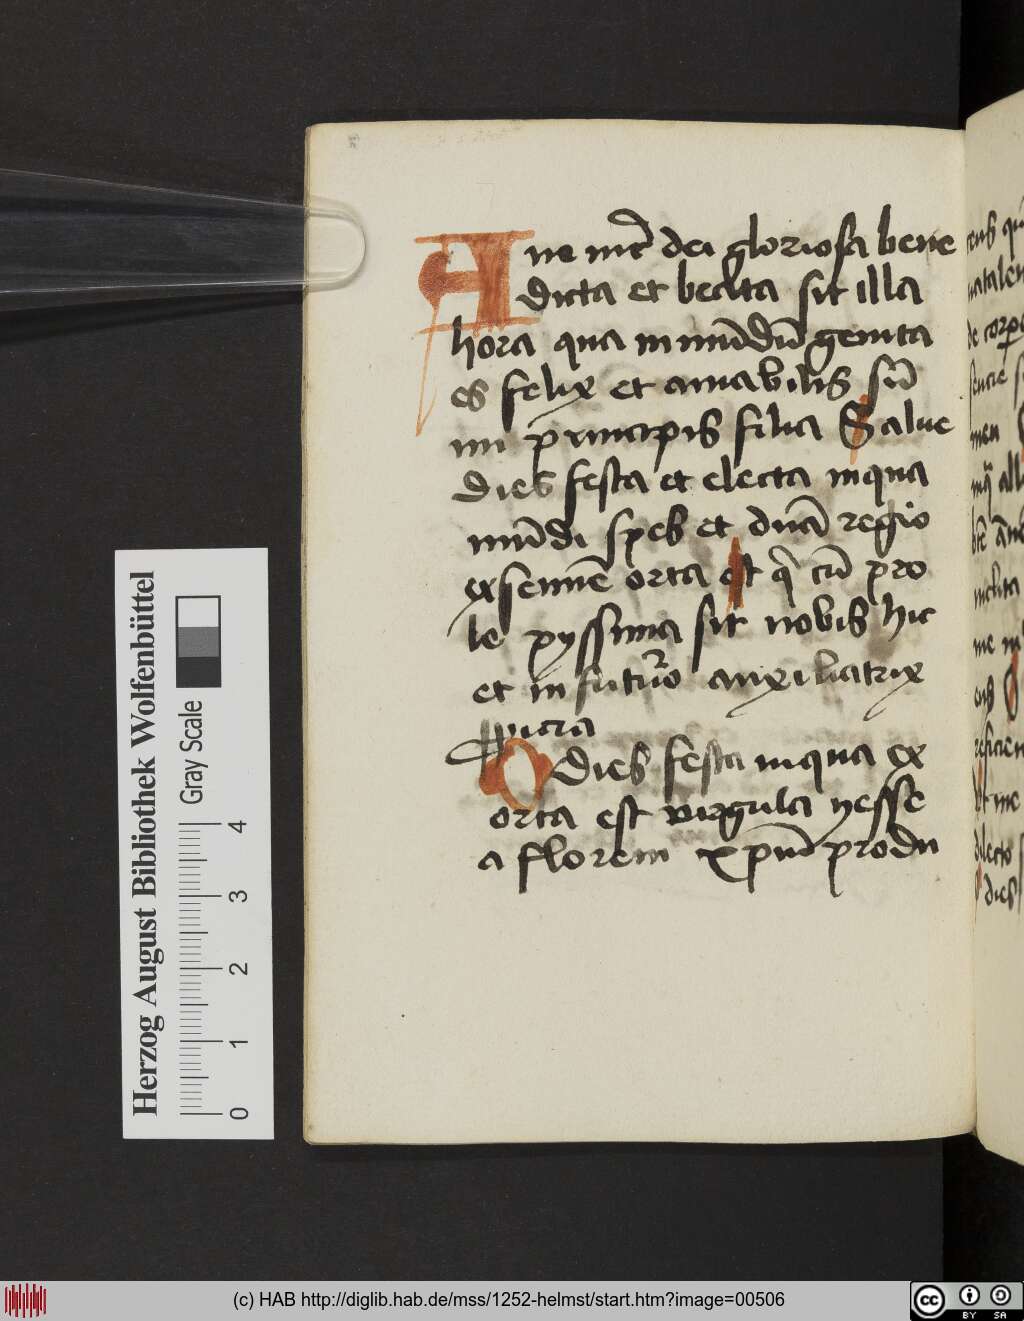 Aue mr̄ dei gloriosa bene
dicta et beata sit illa
hora qua in mūdū genita
es felix et amabilis sūm
mi principis filia Salue
dies festa et electa in qua
mūdi spes et dn̄a regio
ex semīe orta est q̄ cū pro
le pyssima sit nobis hic
et in futuro auxiliatrix
O dies festa in qua ex
orta est virgula yesse
a florem xpm̄ produ
Herzog August Bibliothek Wolfenbüttel
Gray Scale
0 1 2 3 4
(c) HAB http://diglib.hab.de/mss/1252-helmst/start.htm?image=00506
cc BY SA